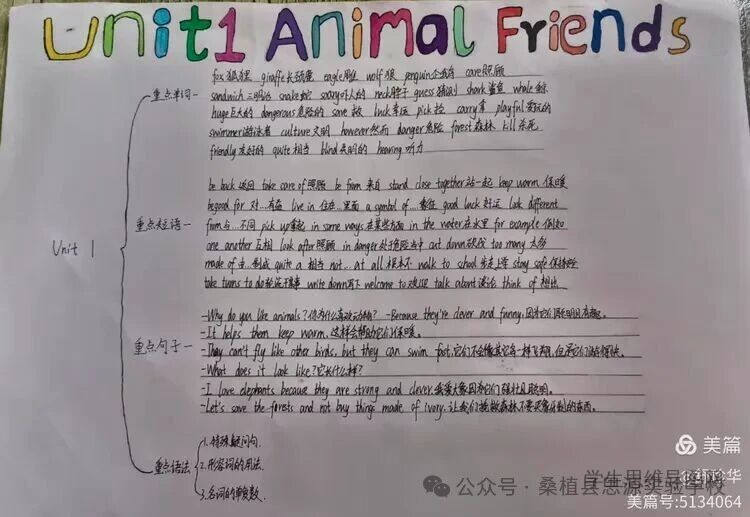 Unit1 Animal Friends
Unit 1
重点单词
fox狐狸 giraffe长颈鹿 eagle雕 wolf狼 penguin企鹅 care照顾
sandwich三明治 snake蛇 scary吓人的 neck脖子 guess猜测 shark鲨鱼 whale鲸
huge巨大的 dangerous危险的 save救 luck幸运 pick捡 carry拿 playful爱玩的
swimmer游泳者 culture文明 however然而 danger危险 forest森林 kill杀死
friendly友好的 quite相当 blind失明的 hearing听力
重点短语
be back返回 take care of照顾 be from来自 stand close together站一起 keep warm保暖
be good for对…有益 live in住在…里面 a symbol of…象征 good luck好运 look different
from与…不同 pick up拿起 in some ways在某些方面 in the water在水里 for example例如
one another互相 look after照顾 in danger处于危险当中 cut down砍伐 too many太多
made of由…制成 quite a相当 not…at all根本不 walk to school步走上学 stay safe保持
take turns to do轮流干某事 write down写下 welcome to欢迎 talk about谈论 think of想出
重点句子
-Why do you like animals?你为什么喜欢动物? -Because they're clever and funny.因为它们聪明且有趣。
-It helps them keep warm.这样会帮助它们保暖。
-They can't fly like other birds, but they can swim fast.它们不会像其它鸟一样飞翔,但是它们游得很快。
-What does it look like?它长什么样?
-I love elephants because they are strong and clever.我爱大象因为它们强壮且聪明。
-Let's save the forests and not buy things made of ivory.让我们拯救森林不要买象牙制的东西。
重点语法
1.特殊疑问句.
2.形容词的用法.
3.名词的单复数.
学生思维导图
美篇
公众号·桑植县思源实验学校
美篇号:5134064